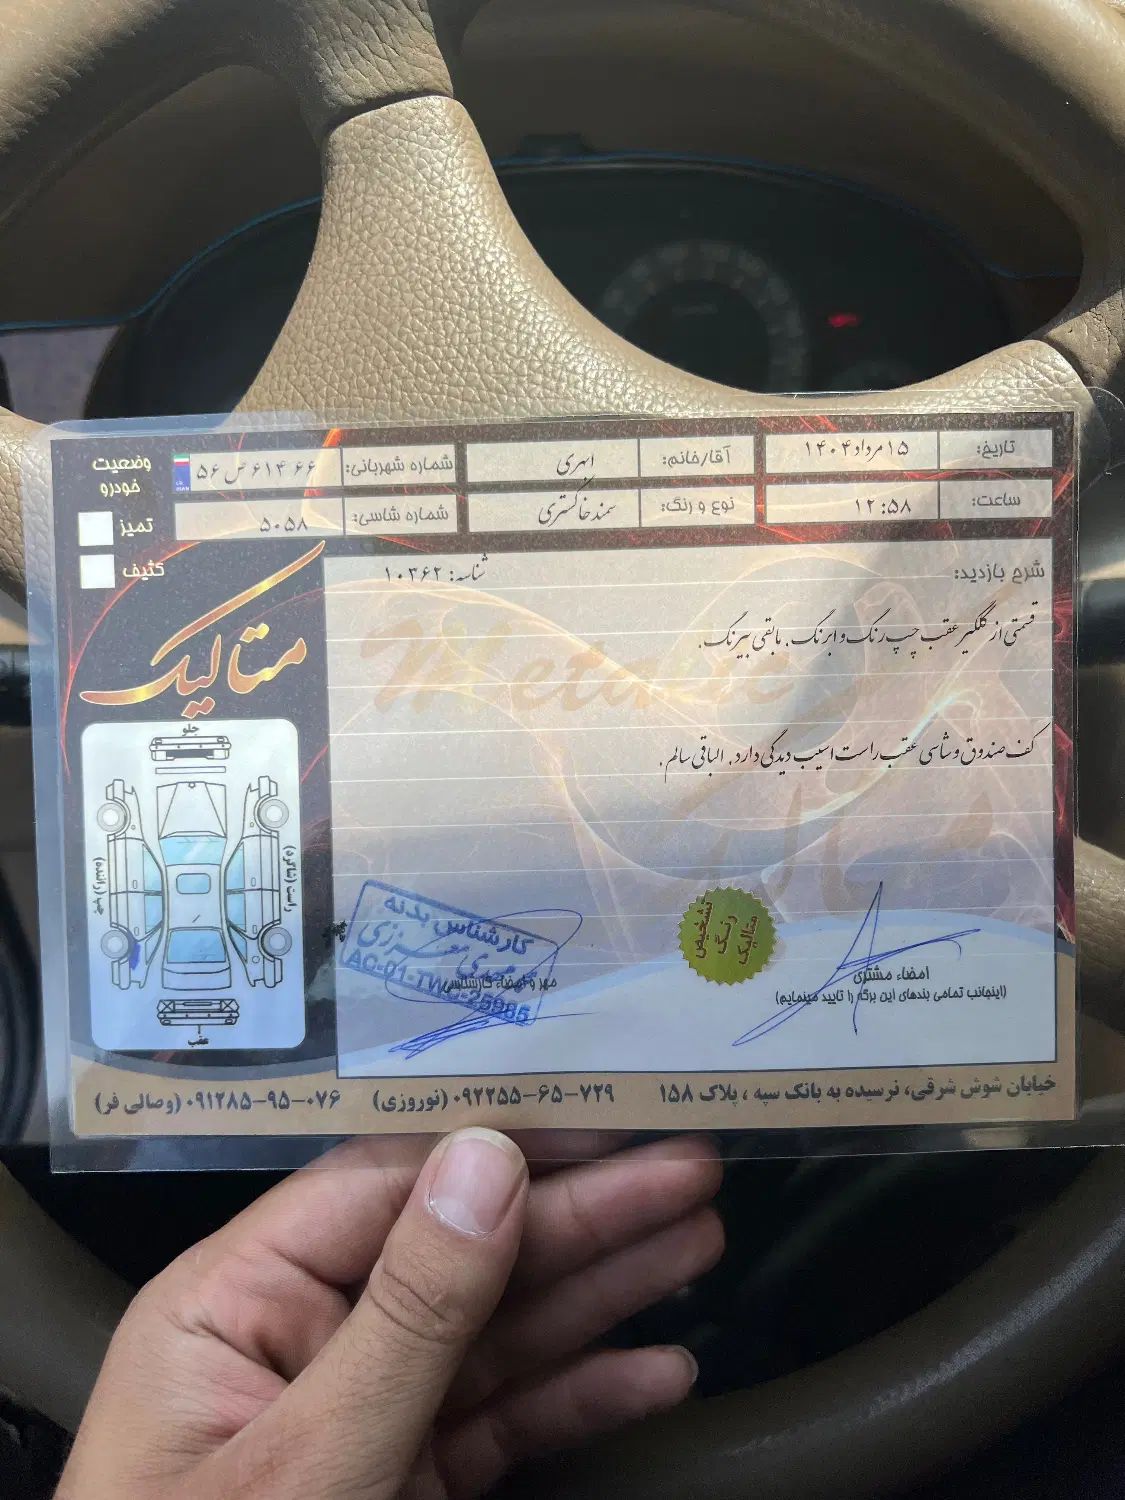 تاریخ: ۱۵ مرداد ۱۴۰۴
آقا/خانم:
شماره شهربانی: ۶۶ ۶۱۴ س ۵۶
ساعت: ۱۲:۵۸
نوع و رنگ: سمند خاکستری
شماره شاسی: ۵۰۵۸
وضعیت
خودرو
تمیز
کثیف
متالیک
شرح بازدید:
شناسه: ۱۰۳۶۲
قسمتی از گلگیر عقب چپ رنگ و ابرنگ. مابقی بیرنگ.
کف صندوق و شاسی عقب راست اسیب دیدگی دارد. الباقی سالم.
Metalic
جلو
چپ (راننده)
راست (شاگرد)
عقب
کارشناس بدنه
AC-01-TWC-25985
مهر و امضاء کارشناسی
تشخیص
رنگ
متالیک
امضاء مشتری
(اینجانب تمامی بندهای این برگه را تایید مینمایم)
خیابان شوش شرقی، نرسیده به بانک سپه ، پلاک ۱۵۸
۰۹۲۲۵۵-۶۵-۷۲۹ (نوروزی)
۰۹۱۲۸۵-۹۵-۰۷۶ (وصالی فر)